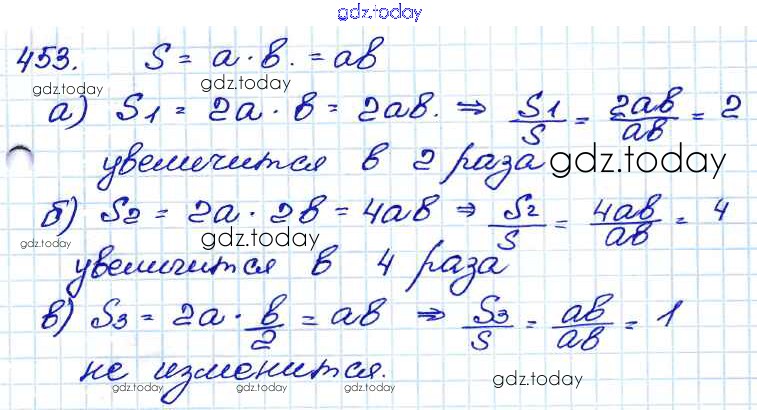 gdz.today
453. S = a · b. = ab
gdz.today gdz.today
а) S1 = 2a · b = 2ab. ⇒ S1/S = 2ab/ab = 2
увеличится в 2 раза gdz.today
б) S2 = 2a · 2b = 4ab ⇒ S2/S = 4ab/ab = 4
gdz.today gdz.today
увеличится в 4 раза
в) S3 = 2a · b/2 = ab ⇒ S3/S = ab/ab = 1
не изменится.
gdz.today gdz.today gdz.today gdz.today